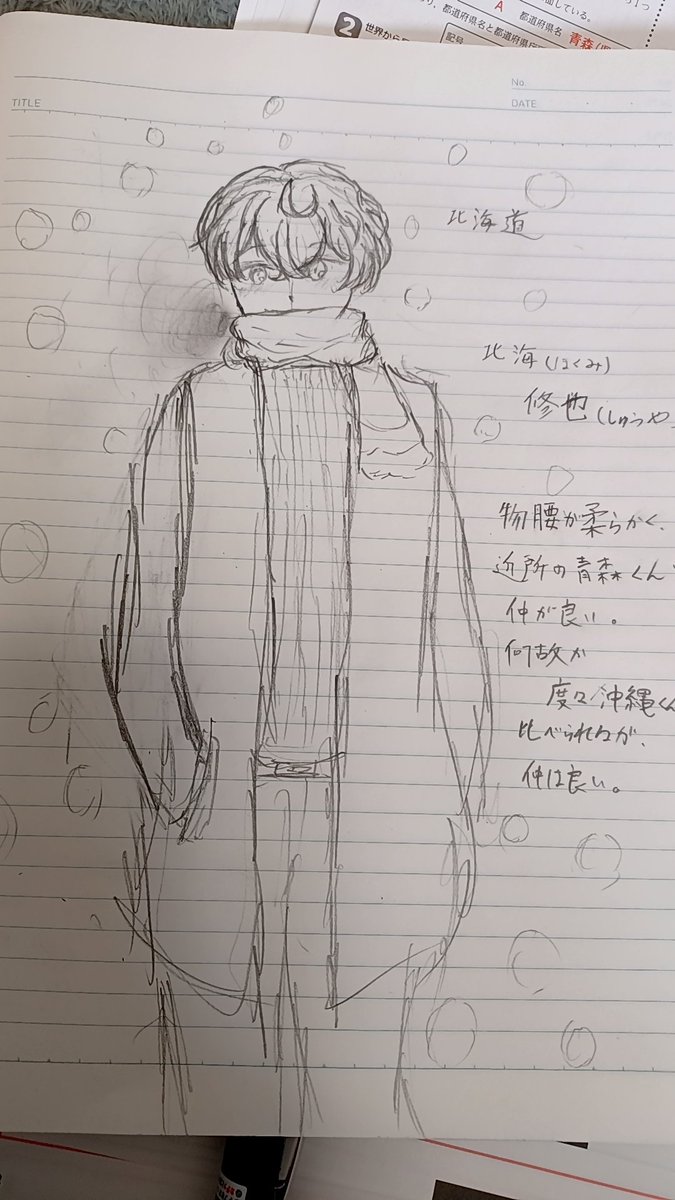 面している。
A 都道府県名
都道府県名と都道府県
青森
2 世界から
記号
No.
TITLE
DATE
北海道
北海(ほくみ)
修也(しゅうや
物腰が柔らかく、
近所の青森くん
仲が良い。
何故か
度々沖縄くん
比べられるが、
仲は良い。